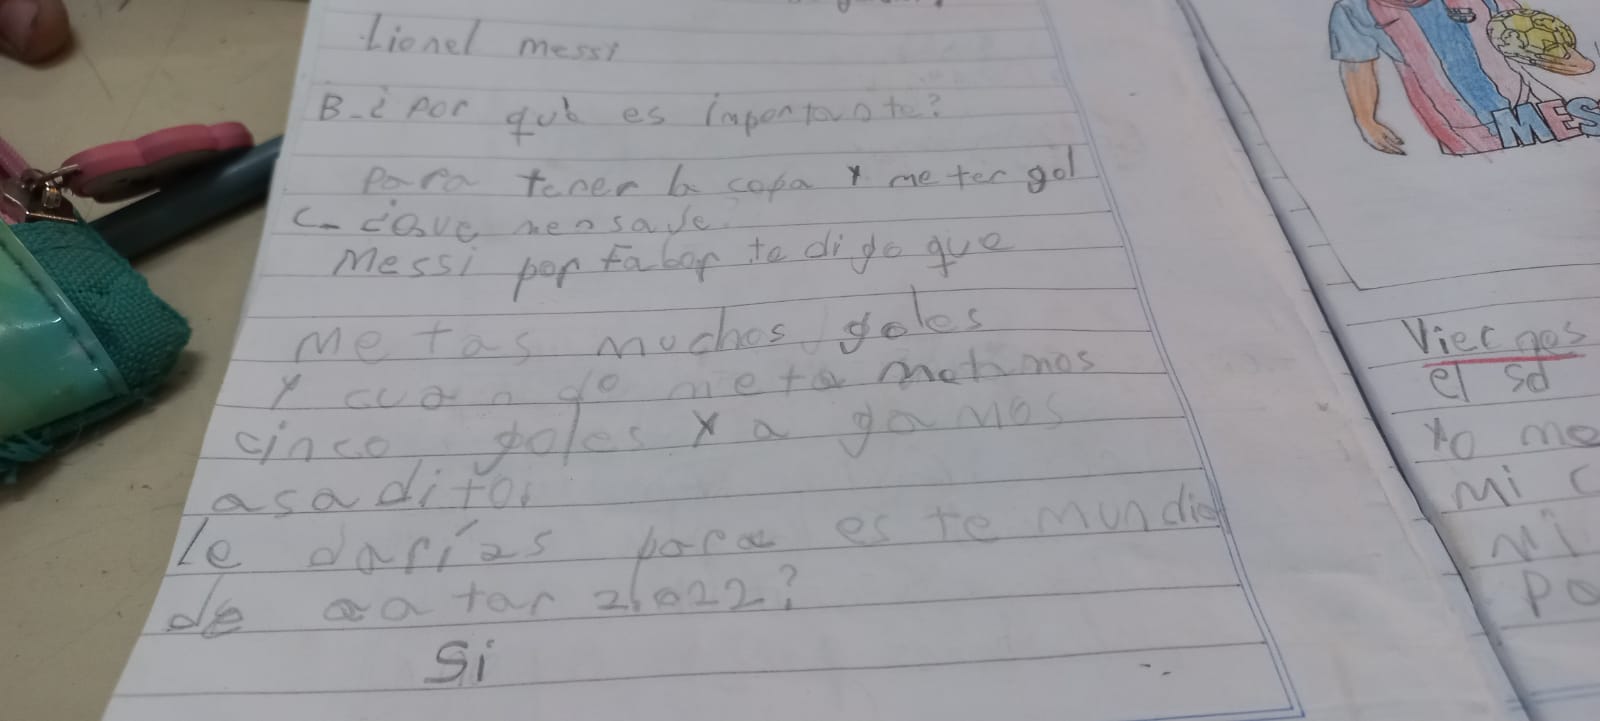 Lionel messi
B-¿por qué es importante?
para tener la copa y meter gol
C-¿Que mensaje
Messi por Fabor te digo que
Metas muchos goles
y cuando meta metimos
cinco goles y a gamos
asadito.
le darías para este mundial
de qatar 2022?
Si
MES
Viernes
el sd
yo me
mi c
mi
po